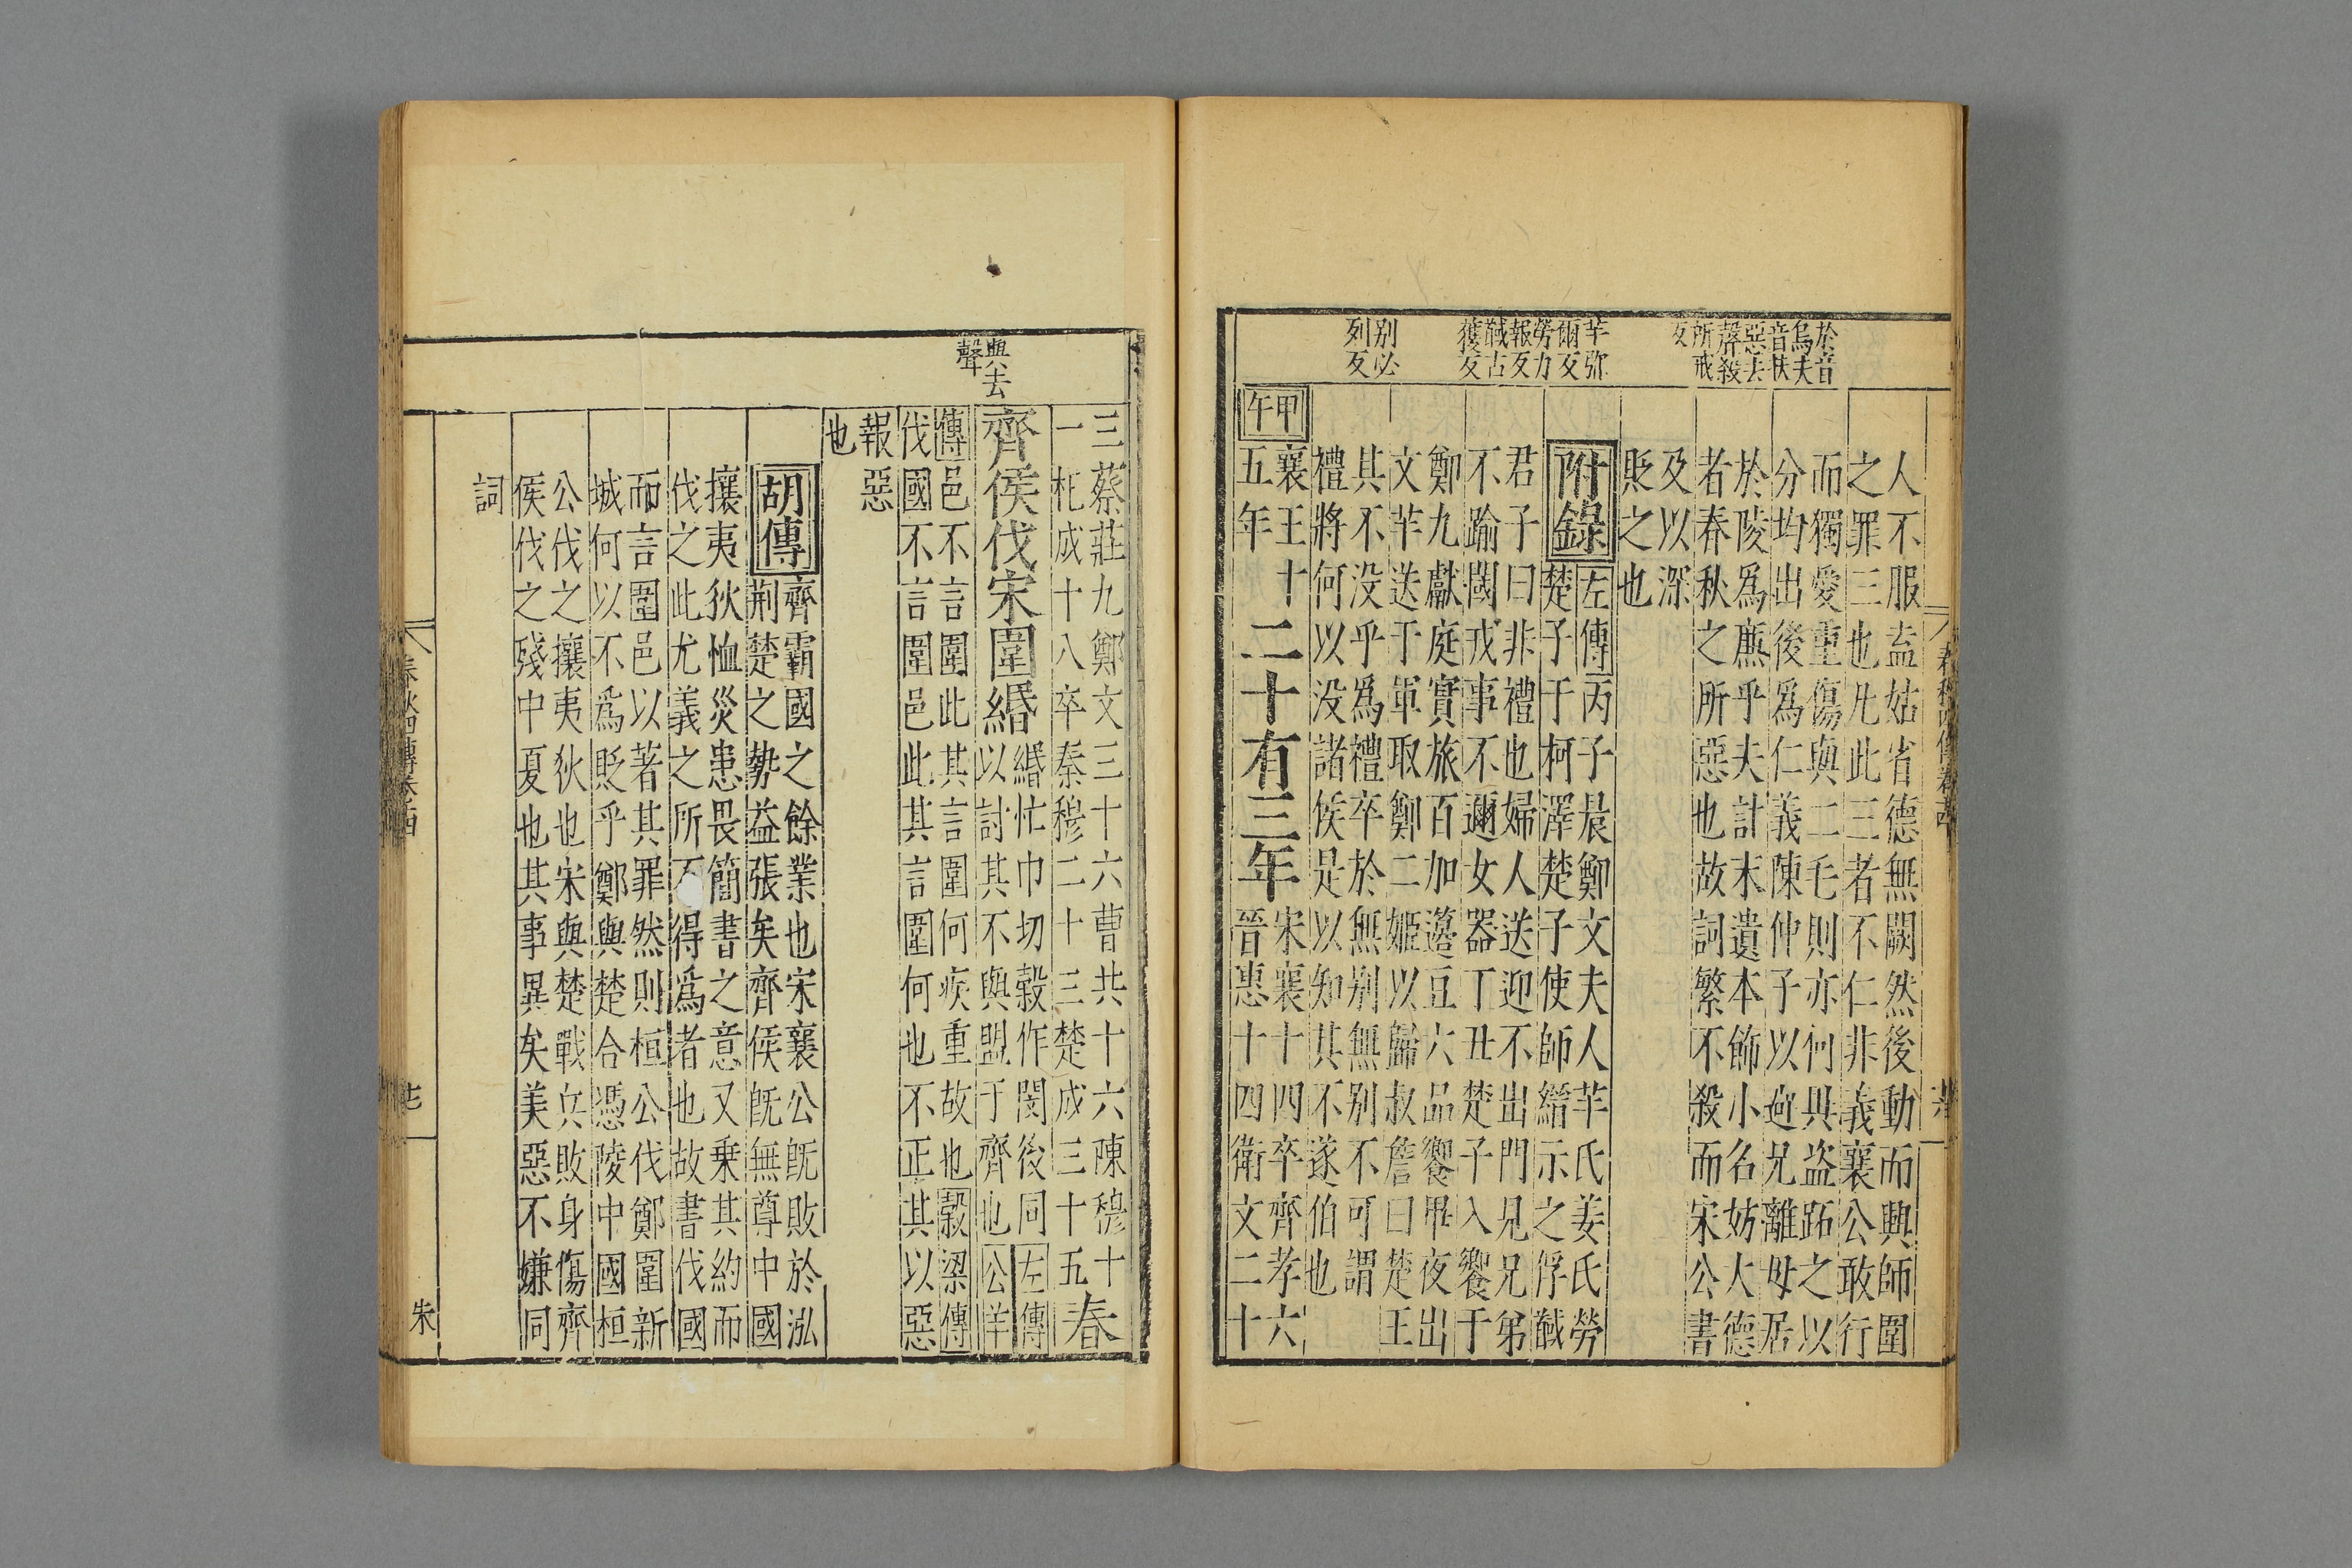 於音
烏夫
音扶
惡去
聲殺
所戒
反
羋弥
爾反
勞力
報反
馘古
獲反
别必
列反
人不服盍姑省德無闕然後動而興師圍
之罪三也凡此三者不仁非義襄公敢行
而獨愛重傷與二毛則亦何異盜跖之以
分均出後爲仁義陳仲子以避兄離母居
於陵爲廉乎夫計末遺本飾小名妨大德
者春秋之所惡也故詞繁不殺而宋公書
及以深
貶之也
附錄
左傳丙子晨鄭文夫人羋氏姜氏勞
楚子于柯澤楚子使師縉示之俘馘
君子曰非禮也婦人送迎不出門見兄弟
不踰閾戎事不邇女器丁丑楚子入饗于
鄭九獻庭實旅百加籩豆六品饗畢夜出
文羋送于軍取鄭二姬以歸叔詹曰楚王
其不没乎爲禮卒於無别無别不可謂
禮將何以没諸侯是以知其不遂伯也
甲午
襄王十
五年
二十有三年
宋襄十四卒齊孝六
晉惠十四衛文二十
三蔡莊九鄭文三十六曹共十六陳穆十
一杞成十八卒秦穆二十三楚成三十五
春
與去
聲
齊侯伐宋圍緡
緡忙巾切穀作閔後同左傳
以討其不與盟于齊也公羊
傳邑不言圍此其言圍何疾重故也穀梁傳
伐國不言圍邑此其言圍何也不正其以惡
報惡
也
胡傳
齊霸國之餘業也宋襄公既敗於泓
荆楚之勢益張矣齊侯既無尊中國
攘夷狄恤災患畏簡書之意又乗其約而
伐之此尤義之所不得爲者也故書伐國
而言圍邑以著其罪然則桓公伐鄭圍新
城何以不爲貶乎鄭與楚合憑陵中國桓
公伐之攘夷狄也宋與楚戰兵敗身傷齊
侯伐之殘中夏也其事異矣美惡不嫌同
詞
朱